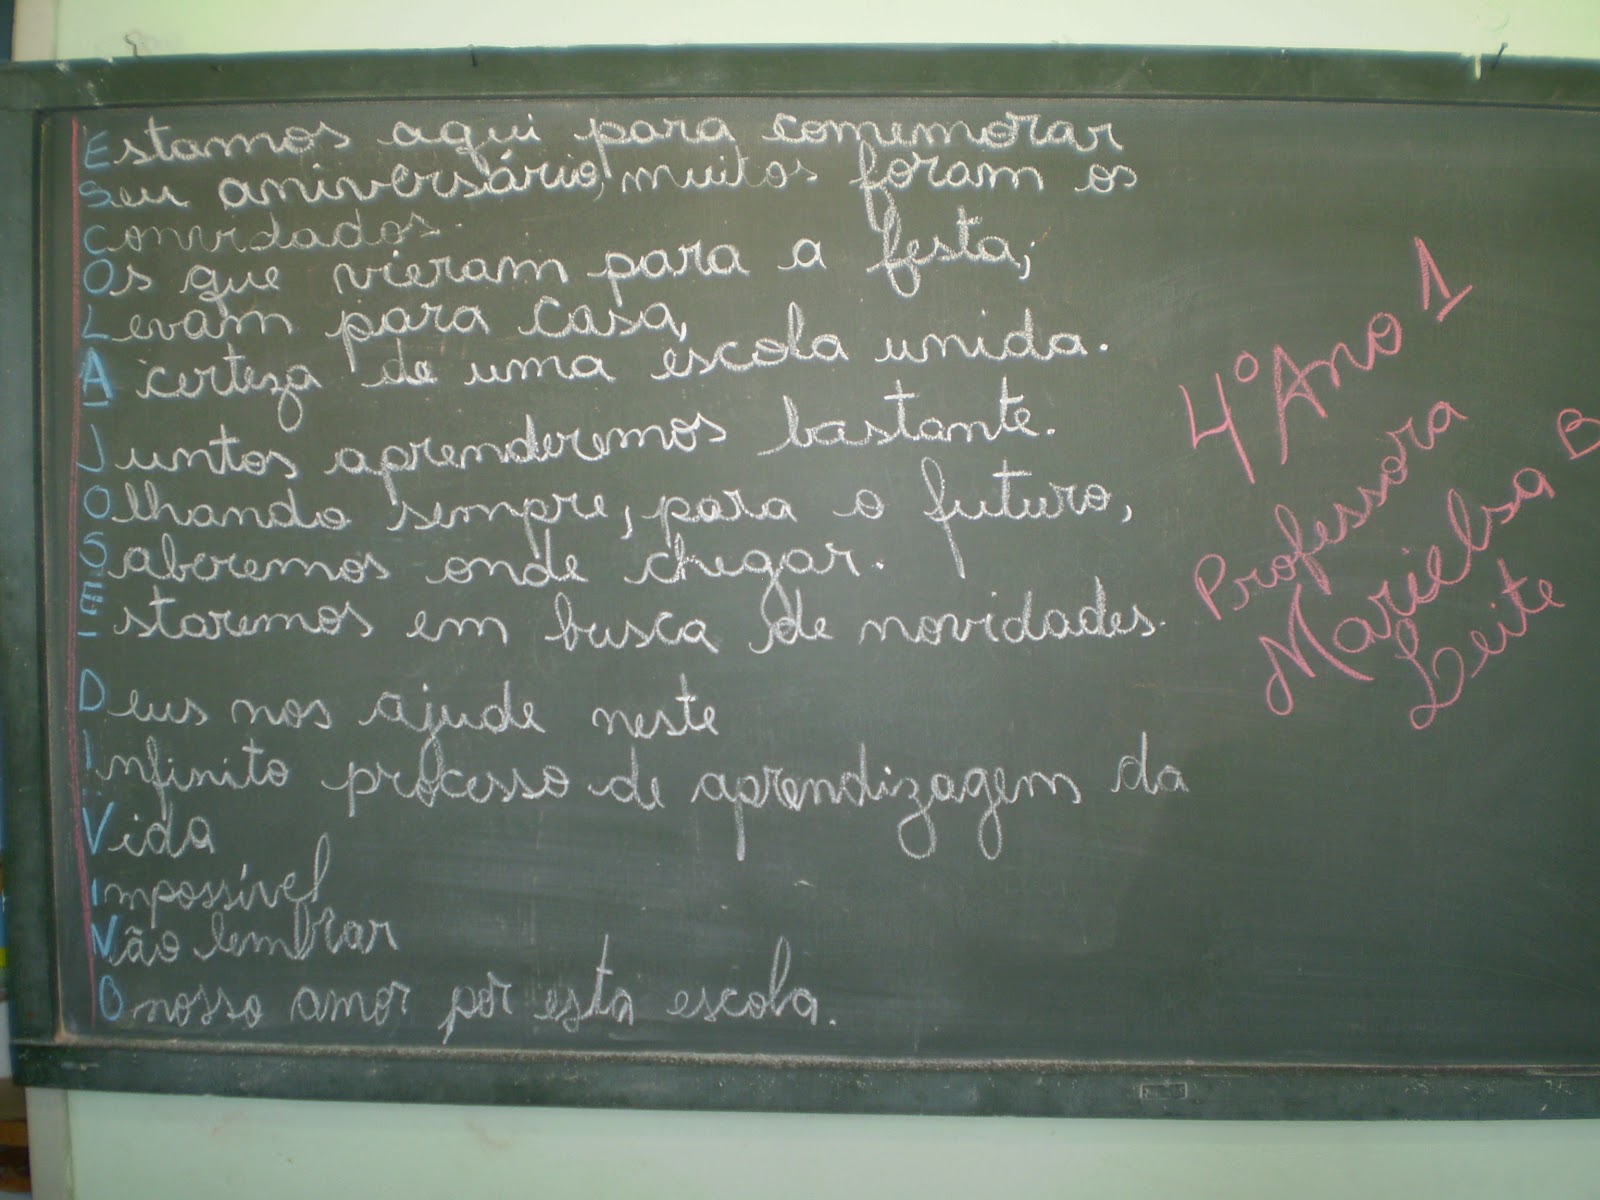 Estamos aqui para comemorar
Seu aniversário, muitos foram os
Convidados.
Os que vieram para a festa;
Levam para casa,
A certeza de uma escola unida.
Juntos aprenderemos bastante.
Olhando sempre, para o futuro,
Saberemos onde chegar.
Estaremos em busca de novidades.
Deus nos ajude neste
Infinito processo de aprendizagem da
Vida
Impossível
Não lembrar
O nosso amor por esta escola.
4º Ano 1
Professora
Marielsa B
Leite